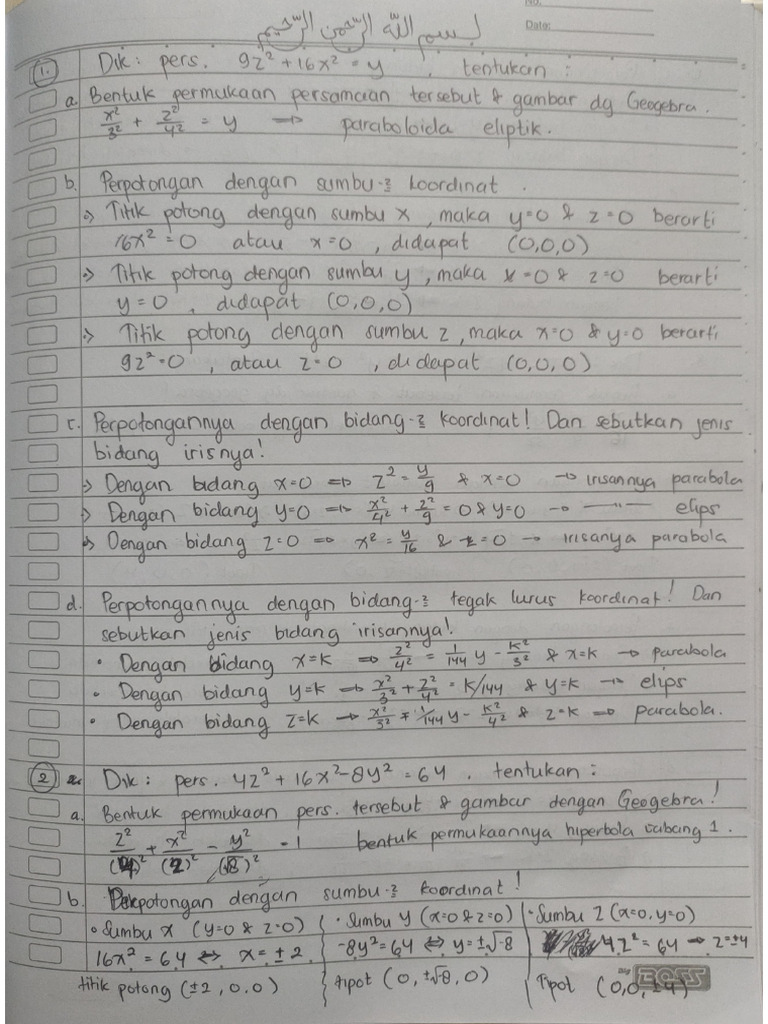 No.
Date:
بسم الله الرحمن الرحيم
1. Dik : pers. 9z² + 16x² = y , tentukan :
a. Bentuk permukaan persamaan tersebut & gambar dg Geogebra.
x²/3² + z²/4² = y → paraboloida eliptik.
b. Perpotongan dengan sumbu-² koordinat .
→ Titik potong dengan sumbu x , maka y=0 & z=0 berarti
16x² = 0 atau x=0 , didapat (0,0,0)
→ Titik potong dengan sumbu y , maka x=0 & z=0 berarti
y = 0 , didapat (0,0,0)
→ Titik potong dengan sumbu z , maka x=0 & y=0 berarti
9z² = 0 , atau z=0 , didapat (0,0,0)
c. Perpotongannya dengan bidang-² koordinat! Dan sebutkan jenis
bidang irisnya!
→ Dengan bidang x=0 ⇒ z² = y/9 & x=0 → irisannya parabola
→ Dengan bidang y=0 ⇒ x²/4² + z²/9 = 0 & y=0 → —"— elips
→ Dengan bidang z=0 ⇒ x² = y/16 & z=0 → irisanya parabola
d. Perpotongannya dengan bidang-² tegak lurus koordinat! Dan
sebutkan jenis bidang irisannya!
• Dengan bidang x=k ⇒ z²/4² = 1/144 y - k²/3² & x=k → parabola
• Dengan bidang y=k → x²/3² + z²/4² = k/144 & y=k → elips
• Dengan bidang z=k → x²/3² = 1/144 y - k²/4² & z=k ⇒ parabola.
2. Dik : pers. 4z² + 16x² - 8y² = 64 . tentukan :
a. Bentuk permukaan pers. tersebut & gambar dengan Geogebra!
z²/(4)² + x²/(2)² - y²/(√8)² = 1 bentuk permukaannya hiperbola cabang 1 .
b. Perpotongan dengan sumbu-² koordinat!
• Sumbu x (y=0 & z=0) • Sumbu y (x=0 & z=0) • Sumbu z (x=0, y=0)
16x² = 64 ⇔ x = ±2 -8y² = 64 ⇔ y = ±√-8 4z² = 64 → z=±4
titik potong (±2, 0, 0) tipot (0, ±√-8, 0) Tipot (0,0,±4)
BOSS